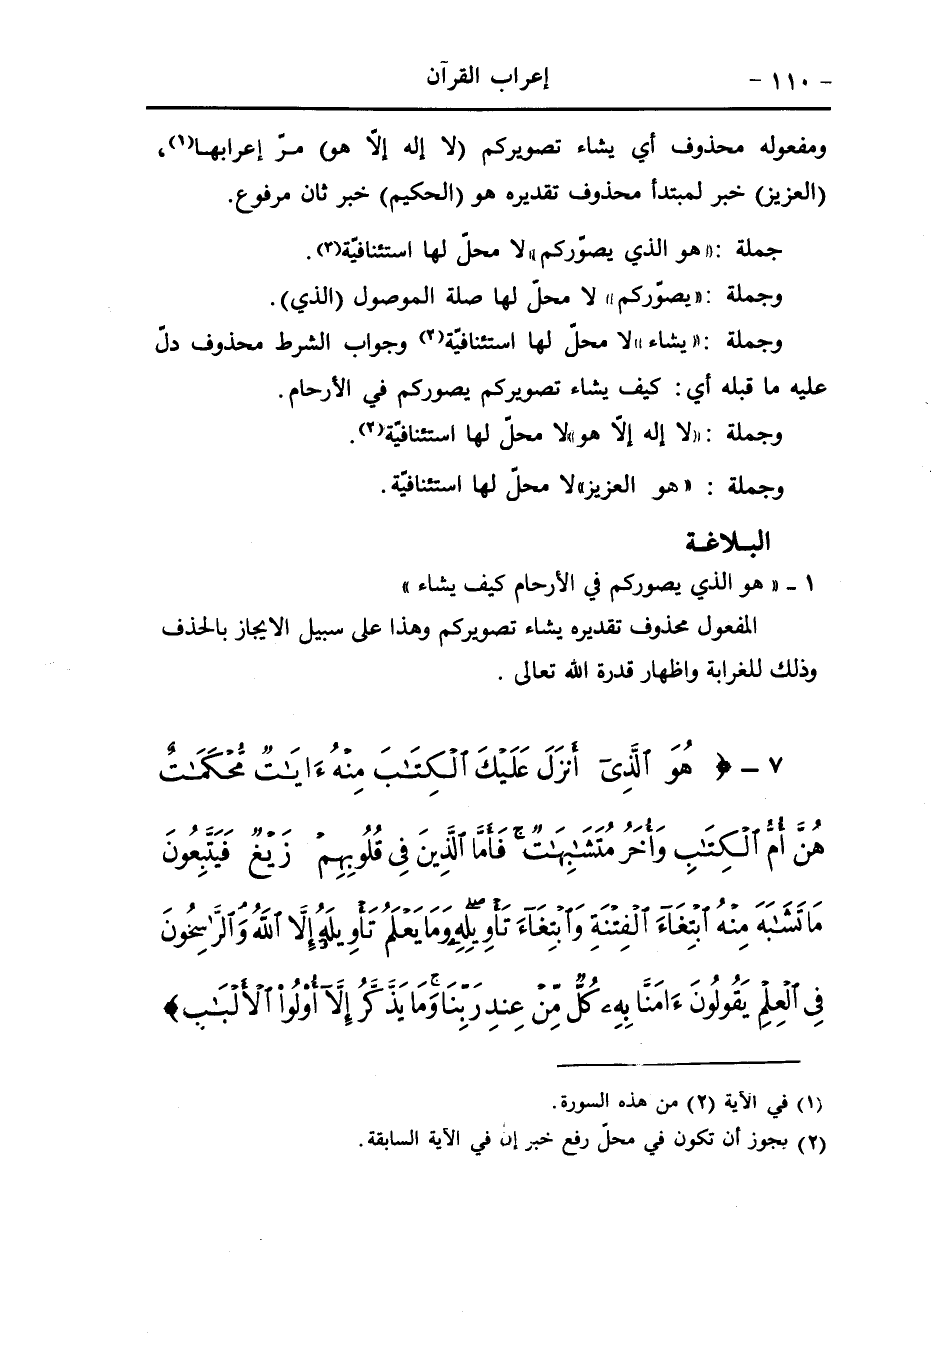 - ١١٠ - إعراب القرآن
ومفعوله محذوف أي يشاء تصويركم (لا إله إلّا هو) مـرّ إعرابهـا(١)،
(العزيز) خبر لمبتدأ محذوف تقديره هو (الحكيم) خبر ثان مرفوع.
جملة :«هو الذي يصوّركم»لا محلّ لها استئنافيّة(٢).
وجملة :«يصوّركم» لا محلّ لها صلة الموصول (الذي).
وجملة :«يشاء»لا محلّ لها استئنافيّة(٢) وجواب الشرط محذوف دلّ
عليه ما قبله أي: كيف يشاء تصويركم يصوركم في الأرحام.
وجملة :«لا إله إلّا هو»لا محلّ لها استئنافيّة(٢).
وجملة : «هو العزيز»لا محلّ لها استئنافيّة.
البـلاغـة
١ ـ « هو الذي يصوركم في الأرحام كيف يشاء »
المفعول محذوف تقديره يشاء تصويركم وهذا على سبيل الايجاز بالحذف
وذلك للغرابة واظهار قدرة الله تعالى .
٧ ـ ﴿ هُوَ ٱلَّذِىٓ أَنزَلَ عَلَيْكَ ٱلْكِتَـٰبَ مِنْهُ ءَايَـٰتٌ مُّحْكَمَـٰتٌ
هُنَّ أُمُّ ٱلْكِتَـٰبِ وَأُخَرُ مُتَشَـٰبِهَـٰتٌ ۖ فَأَمَّا ٱلَّذِينَ فِى قُلُوبِهِمْ زَيْغٌ فَيَتَّبِعُونَ
مَا تَشَـٰبَهَ مِنْهُ ٱبْتِغَآءَ ٱلْفِتْنَةِ وَٱبْتِغَآءَ تَأْوِيلِهِۦ ۗ وَمَا يَعْلَمُ تَأْوِيلَهُۥٓ إِلَّا ٱللَّهُ وَٱلرَّٰسِخُونَ
فِى ٱلْعِلْمِ يَقُولُونَ ءَامَنَّا بِهِۦ كُلٌّ مِّنْ عِندِ رَبِّنَا ۗ وَمَا يَذَّكَّرُ إِلَّآ أُو۟لُوا۟ ٱلْأَلْبَـٰبِ ﴾
(١) في الآية (٢) من هذه السورة.
(٢) يجوز أن تكون في محلّ رفع خبر إنّ في الآية السابقة.